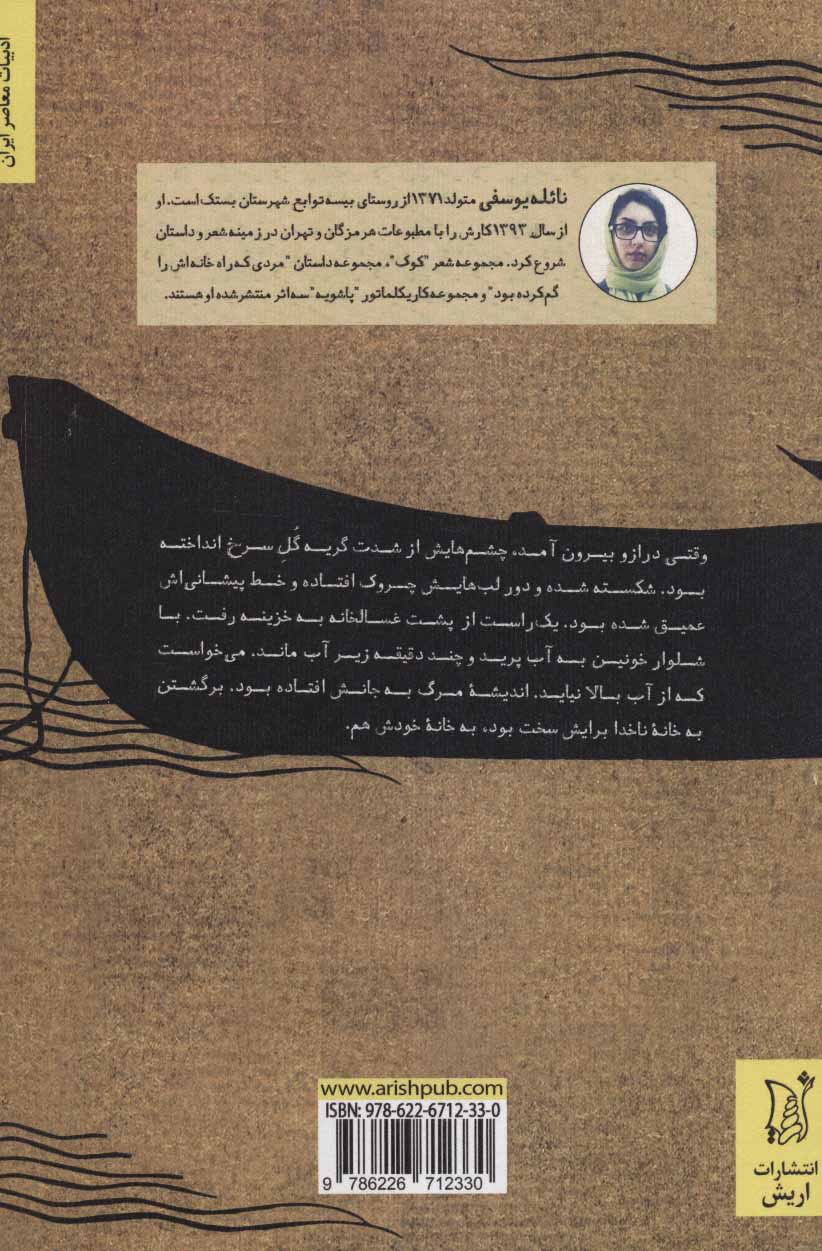 ادبیات معاصر ایران
نائله یوسفی متولد ۱۳۷۱ از روستای بیسه توابع شهرستان بستک است. او
از سال ۱۳۹۳ کارش را با مطبوعات هرمزگان و تهران در زمینه شعر و داستان
شروع کرد. مجموعه شعر "کوک"، مجموعه داستان "مردی که راه خانه‌اش را
گم کرده بود" و مجموعه کاریکلماتور "پاشویه" سه اثر منتشر شده او هستند.
وقتی درازو بیرون آمد، چشم‌هایش از شدت گریه گُلِ سرخ انداخته
بود. شکسته شده و دور لب‌هایش چروک افتاده و خط پیشانی‌اش
عمیق شده بود. یک‌راست از پشت غسالخانه به خزینه رفت. با
شلوار خونین به آب پرید و چند دقیقه زیر آب ماند. می‌خواست
که از آب بالا نیاید. اندیشهٔ مرگ به جانش افتاده بود. برگشتن
به خانهٔ ناخدا برایش سخت بود، به خانهٔ خودش هم.
www.arishpub.com
ISBN: 978-622-6712-33-0
9 786226 712330
انتشارات
اریش